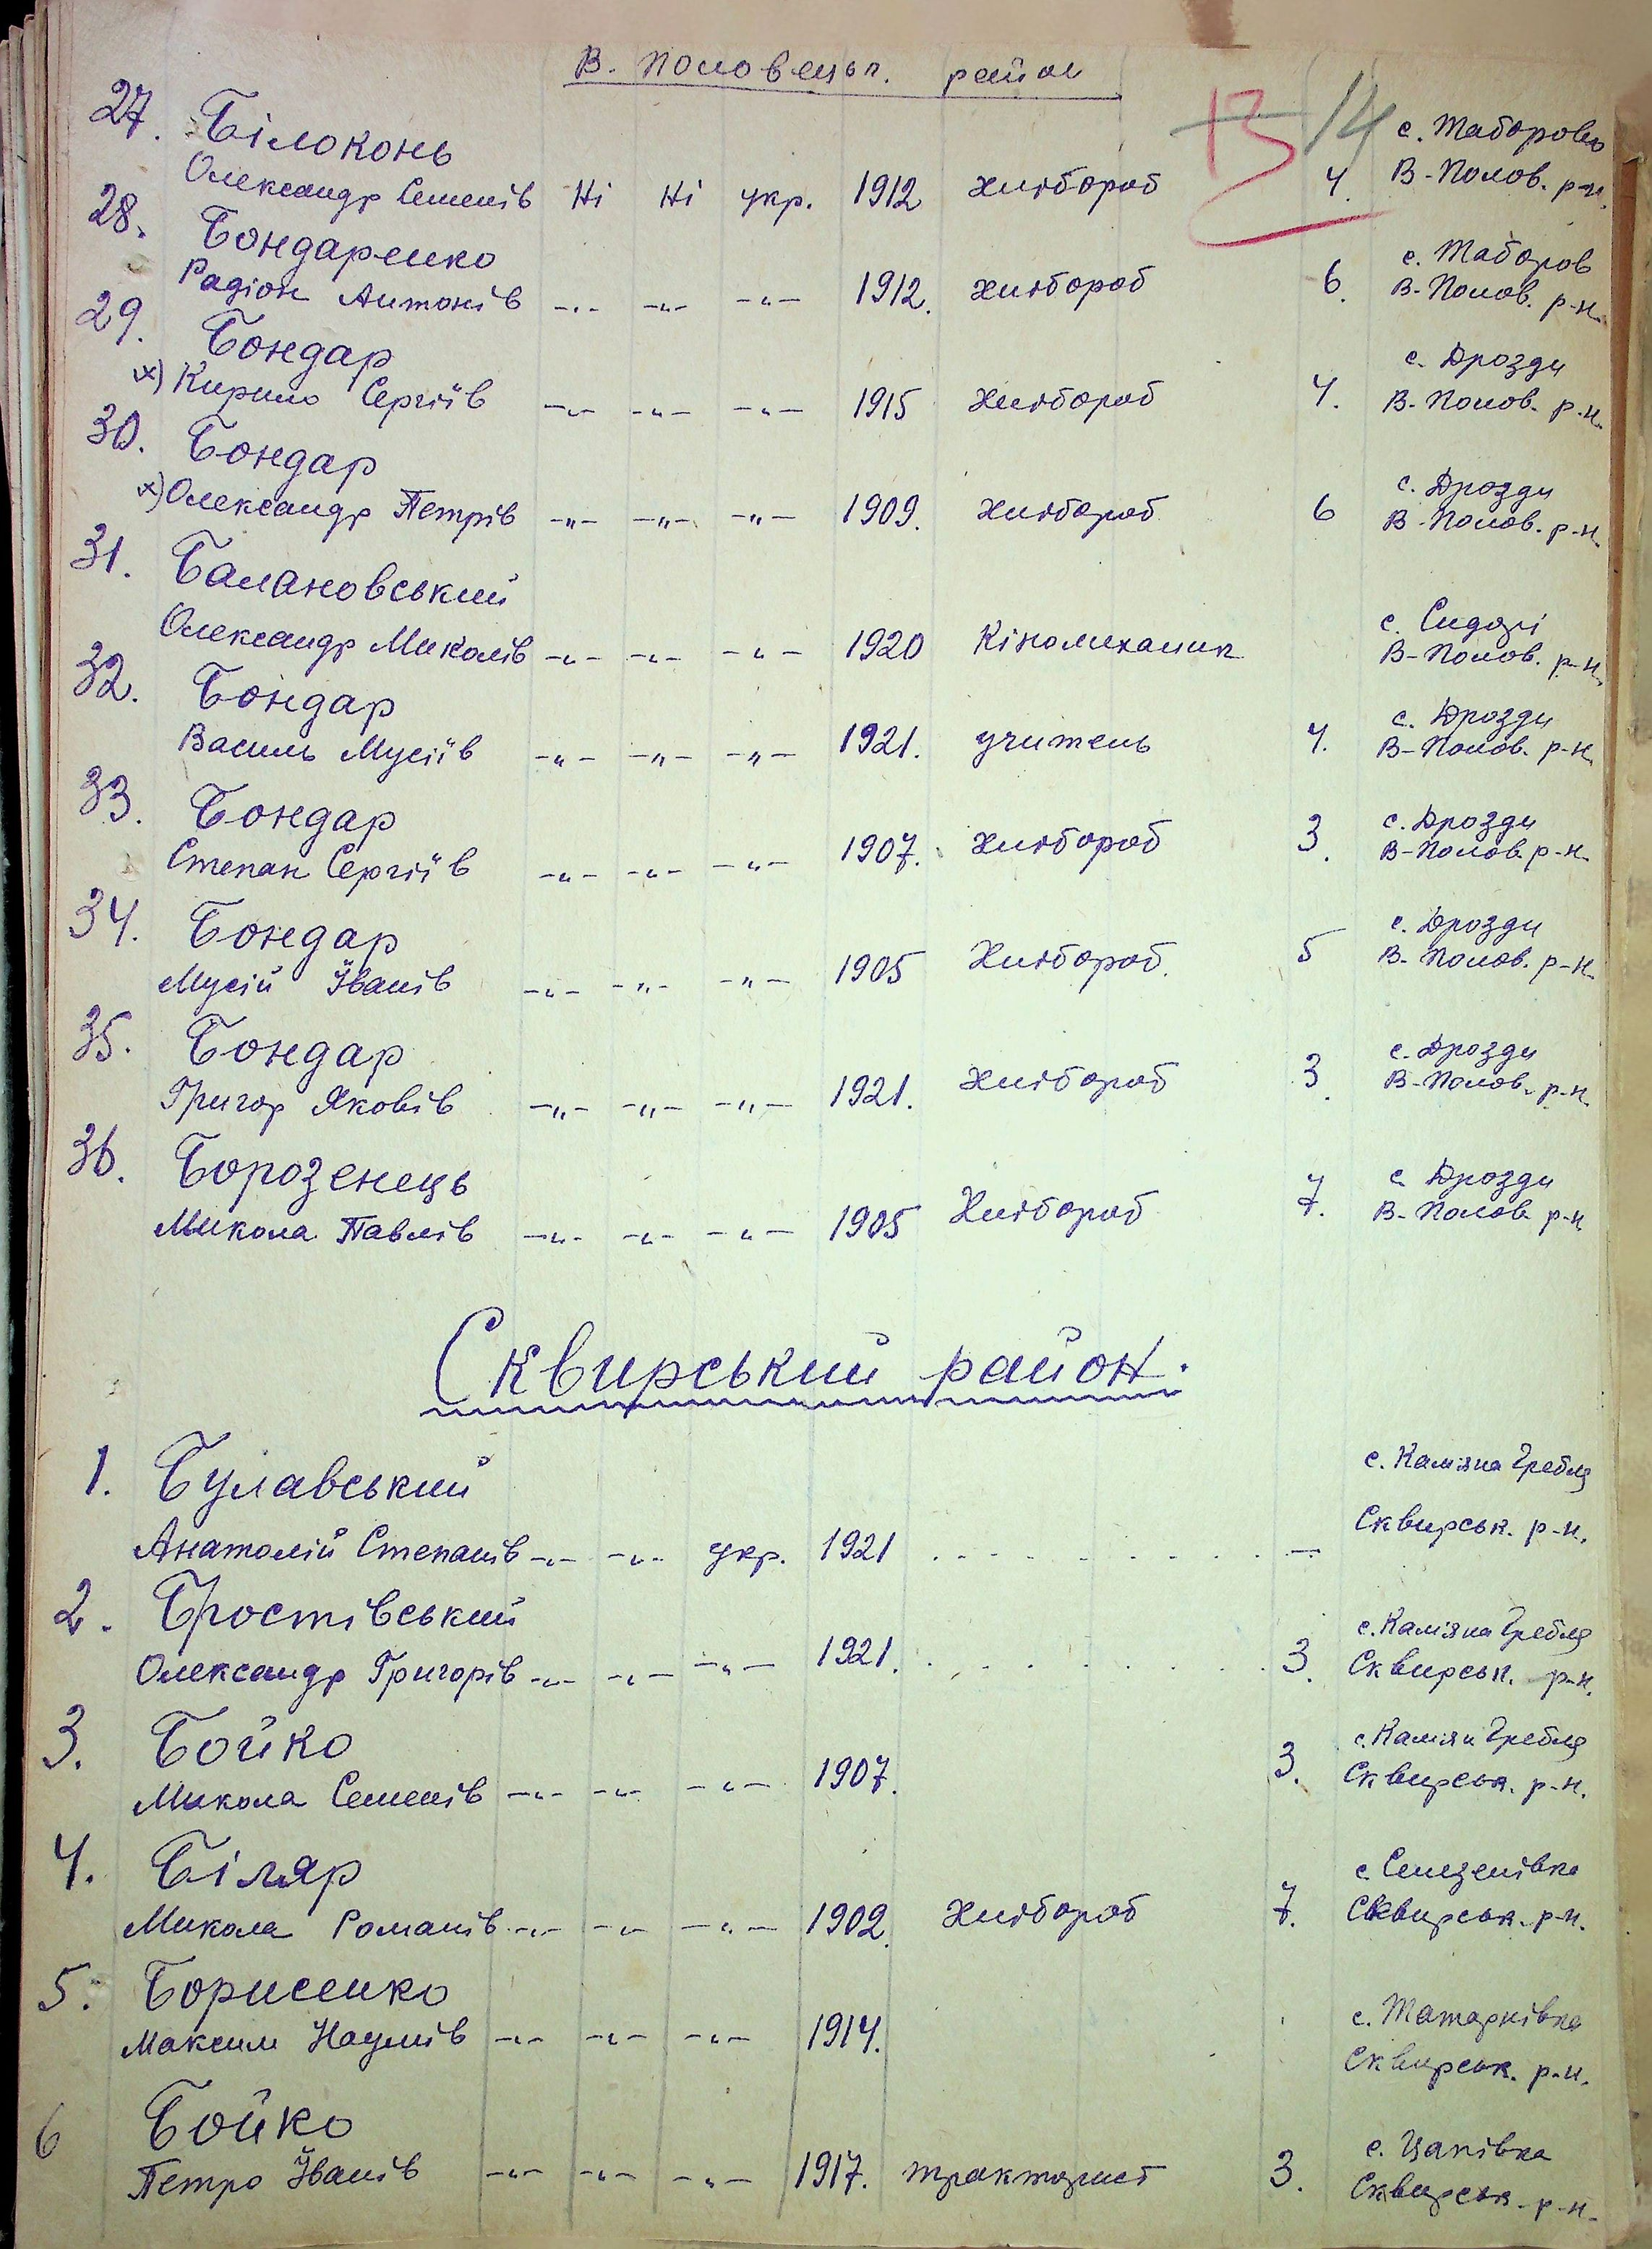 В. Половецьк. район
13 14
27. Білоконь с. Таборов
Олександр Семенів Ні Ні укр. 1912 хлібороб 4. В-Полов. р-н.
28. Бондаренко с. Таборов
Радіон Антонів -"- -"- -"- 1912. хлібороб 6. В-Полов. р-н.
29. Бондар с. Дрозди
х) Кирило Сергіїв -"- -"- -"- 1915 хлібороб 4. В-Полов. р-н.
30. Бондар с. Дрозди
х) Олександр Петрів -"- -"- -"- 1909. хлібороб 6 В-Полов. р-н.
31. Балановський с. Сидорі
Олександр Миколів -"- -"- -"- 1920 Кіномеханик В-Полов. р-н.
32. Бондар с. Дрозди
Василь Мусіїв -"- -"- -"- 1921. учитель 4. В-Полов. р-н.
33. Бондар с. Дрозди
Степан Сергіїв -"- -"- -"- 1907. хлібороб 3. В-Полов. р-н.
34. Бондар с. Дрозди
Мусій Іванів -"- -"- -"- 1905 Хлібороб. 5 В-Полов. р-н.
35. Бондар с. Дрозди
Григор Яковів -"- -"- -"- 1921. хлібороб 3. В-Полов. р-н.
36. Борозенець с. Дрозди
Микола Павлів -"- -"- -"- 1905 Хлібороб 7. В-Полов. р-н
Сквирський район.
1. Булавський с. Камяна Гребля
Анатолій Степанів -"- -"- укр. 1921 . . . . . . . . . . — Сквирськ. р-н.
2. Бростівський с. Камяна Гребля
Олександр Григорів -"- -"- -"- 1921. . . . . . . . . . . 3. Сквирськ. р-н.
3. Бойко с. Камян Гребля
Микола Семенів -"- -"- -"- 1907. 3. Сквирськ. р-н.
4. Біляр с. Селезенівка
Микола Романів -"- -"- -"- 1902. Хлібороб 7. Сквирськ. р-н.
5. Борисенко с. Татарнівка
Максим Наумів -"- -"- -"- 1914. Сквирськ. р-н.
6 Бойко с. Цапівка
Петро Іванів -"- -"- -"- 1917. тракторист 3. Сквирськ. р-н.